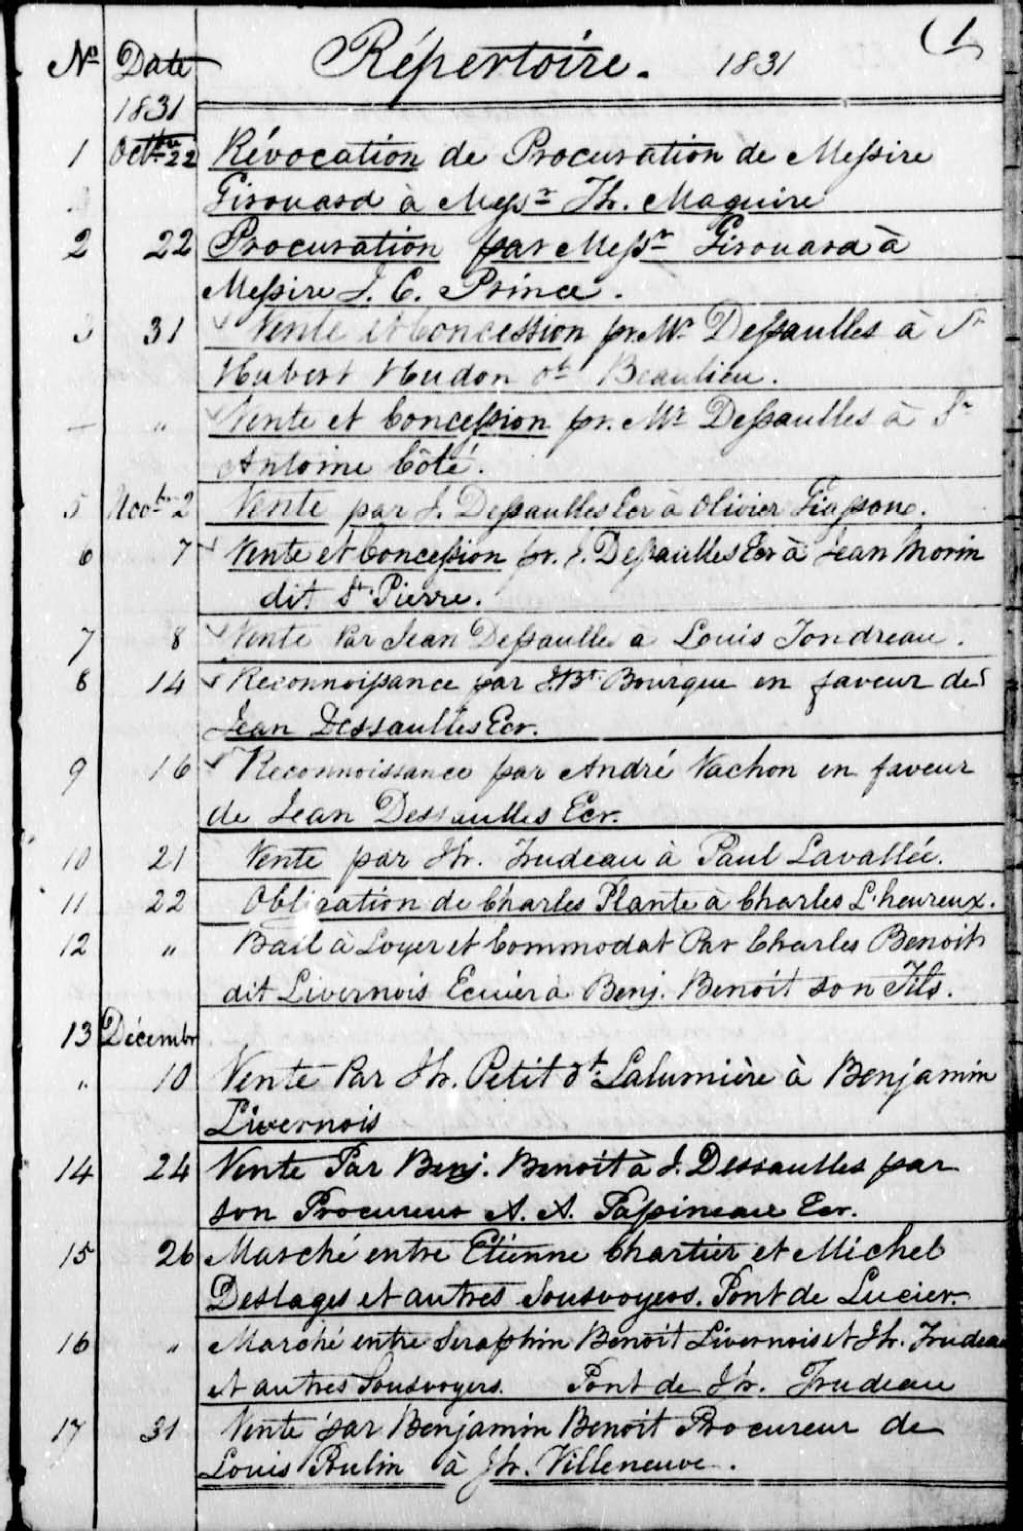 (1)
No Date Répertoire. 1831
1831
1 Octbre 22 Révocation de Procuration de Messire
Girouard à Messr Th. Maguire
2 22 Procuration par Messr Girouard à
Messire J. C. Prince.
3 31 Vente et Concession pr. Mr Dessaulles à Sr
Hubert Hudon dt Beaulieu.
— " Vente et Concession pr. Mr Dessaulles à Sr
Antoine Côté.
5 Novbr 2 Vente par J. Dessaulles Ecr à Olivier
6 7 Vente et Concession pr. J. Dessaulles Ecr à Jean Morin
dit St Pierre.
7 8 Vente Par Jean Dessaulle à Louis Jondreau.
8 14 Reconnoissance par J. Bt Bourque en faveur de
Jean Dessaulles Ecr.
9 16 Reconnoissance par André Vachon en faveur
de Jean Dessaulles Ecr.
10 21 Vente par Jh. Trudeau à Paul Lavallée.
11 22 Obligation de Charles Plante à Charles L'heureux.
12 " Bail à Loyer et Commodat Par Charles Benoit
dit Livernois Ecuier à Benj. Benoit son Fils.
13 Décembr
" 10 Vente Par Jh. Petit dt Lalumière à Benjamin
Livernois
14 24 Vente Par Benj. Benoit à J. Dessaulles par
son Procureur A. A. Papineau Ecr.
15 26 Marché entre Etienne Chartier et Michel
Deslages et autres Sousvoyers. Pont de Lucier.
16 " Marché entre Seraphin Benoit Livernois et Jh. Trudeau
et autres Sousvoyers. Pont de Jh. Trudeau
17 31 Vente par Benjamin Benoit Procureur de
Louis Poulin à Jh. Villeneuve.